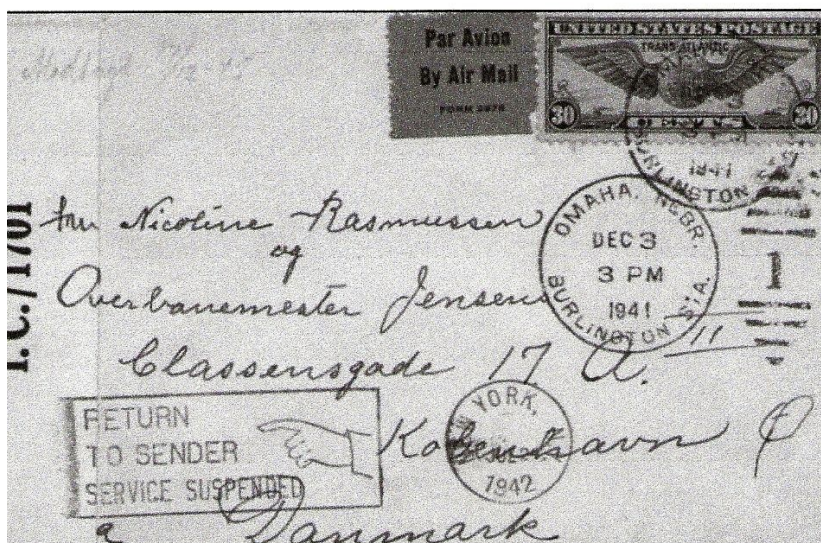 Modtaget
Par Avion
By Air Mail
FORM 2978
UNITED STATES POSTAGE
TRANS-ATLANTIC
30 CENTS 30
1941
BURLINGTON
I.C./1701
Fru Nicoline Rasmussen
og
Overbanemester Jensen
Classensgade 17 A. II
København Ø
Danmark
OMAHA, NEBR.
DEC 3
3 PM
1941
BURLINGTON STA.
1
RETURN
TO SENDER
SERVICE SUSPENDED
NEW YORK,
1942